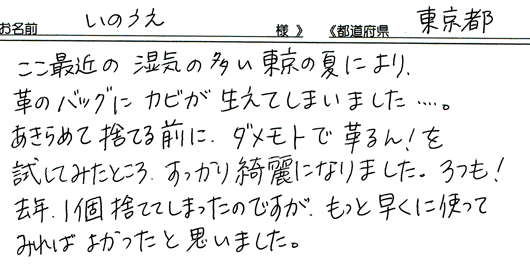 お名前 いのうえ 様 》 《都道府県 東京都
ここ最近の 湿気の多い東京の夏により、
革のバッグに カビが 生えてしまいました ‥‥。
あきらめて捨てる前に、ダメモトで 革るん!を
試してみたところ、すっかり綺麗になりました。3つも!
去年、1個捨ててしまったのですが、もっと早くに使って
みれば よかったと思いました。